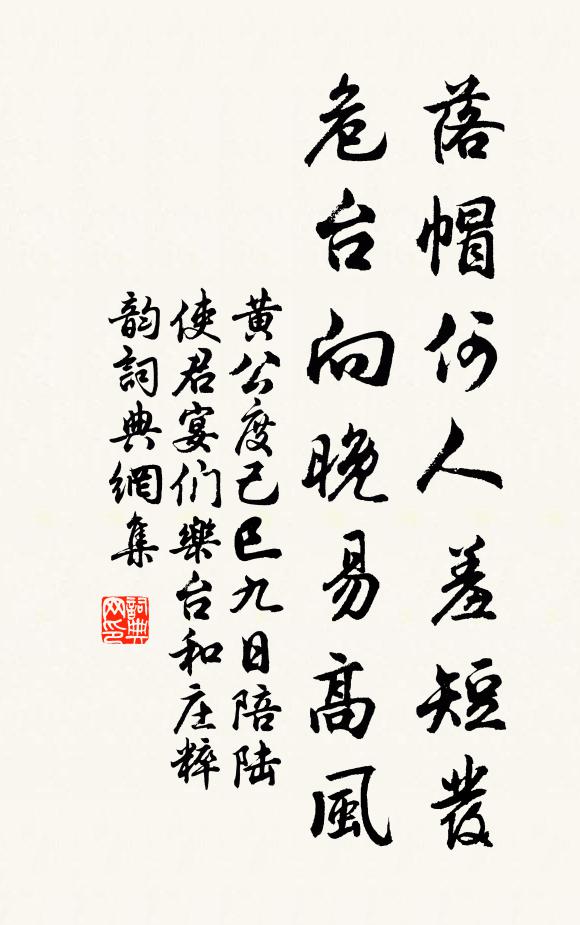 落帽何人羞短發
危台向晚易高風
黄公度己巳九日陪陆
使君宴们樂台和庄粹
韵詞典網集
詞典网印